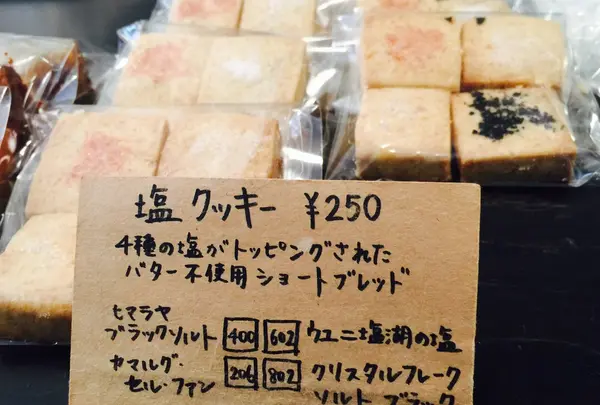 塩クッキー ¥250
4種の塩がトッピングされた
バター不使用ショートブレッド
ヒマラヤ
ブラックソルト 400 602 ウユニ塩湖の塩
ヤマルグ・
セル・ファン 206 802 クリスタルフレーク
ソルト ブラック